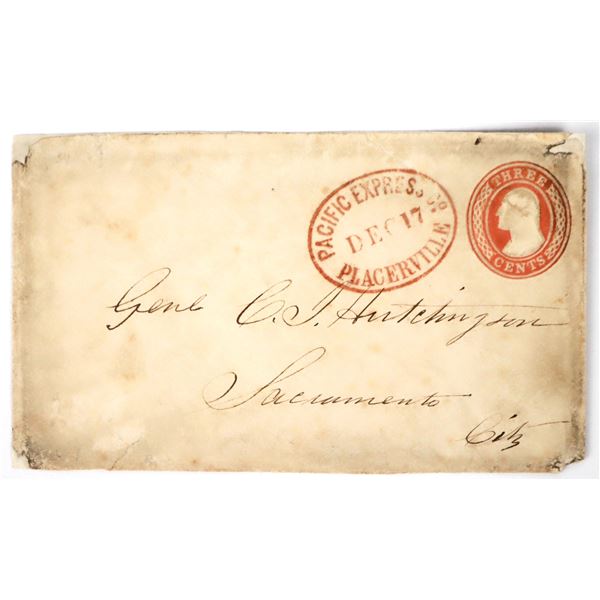 PACIFIC EXPRESS Co
DEC 17
PLACERVILLE
THREE
CENTS
Genl C. I. Hutchinson
Sacramento
City